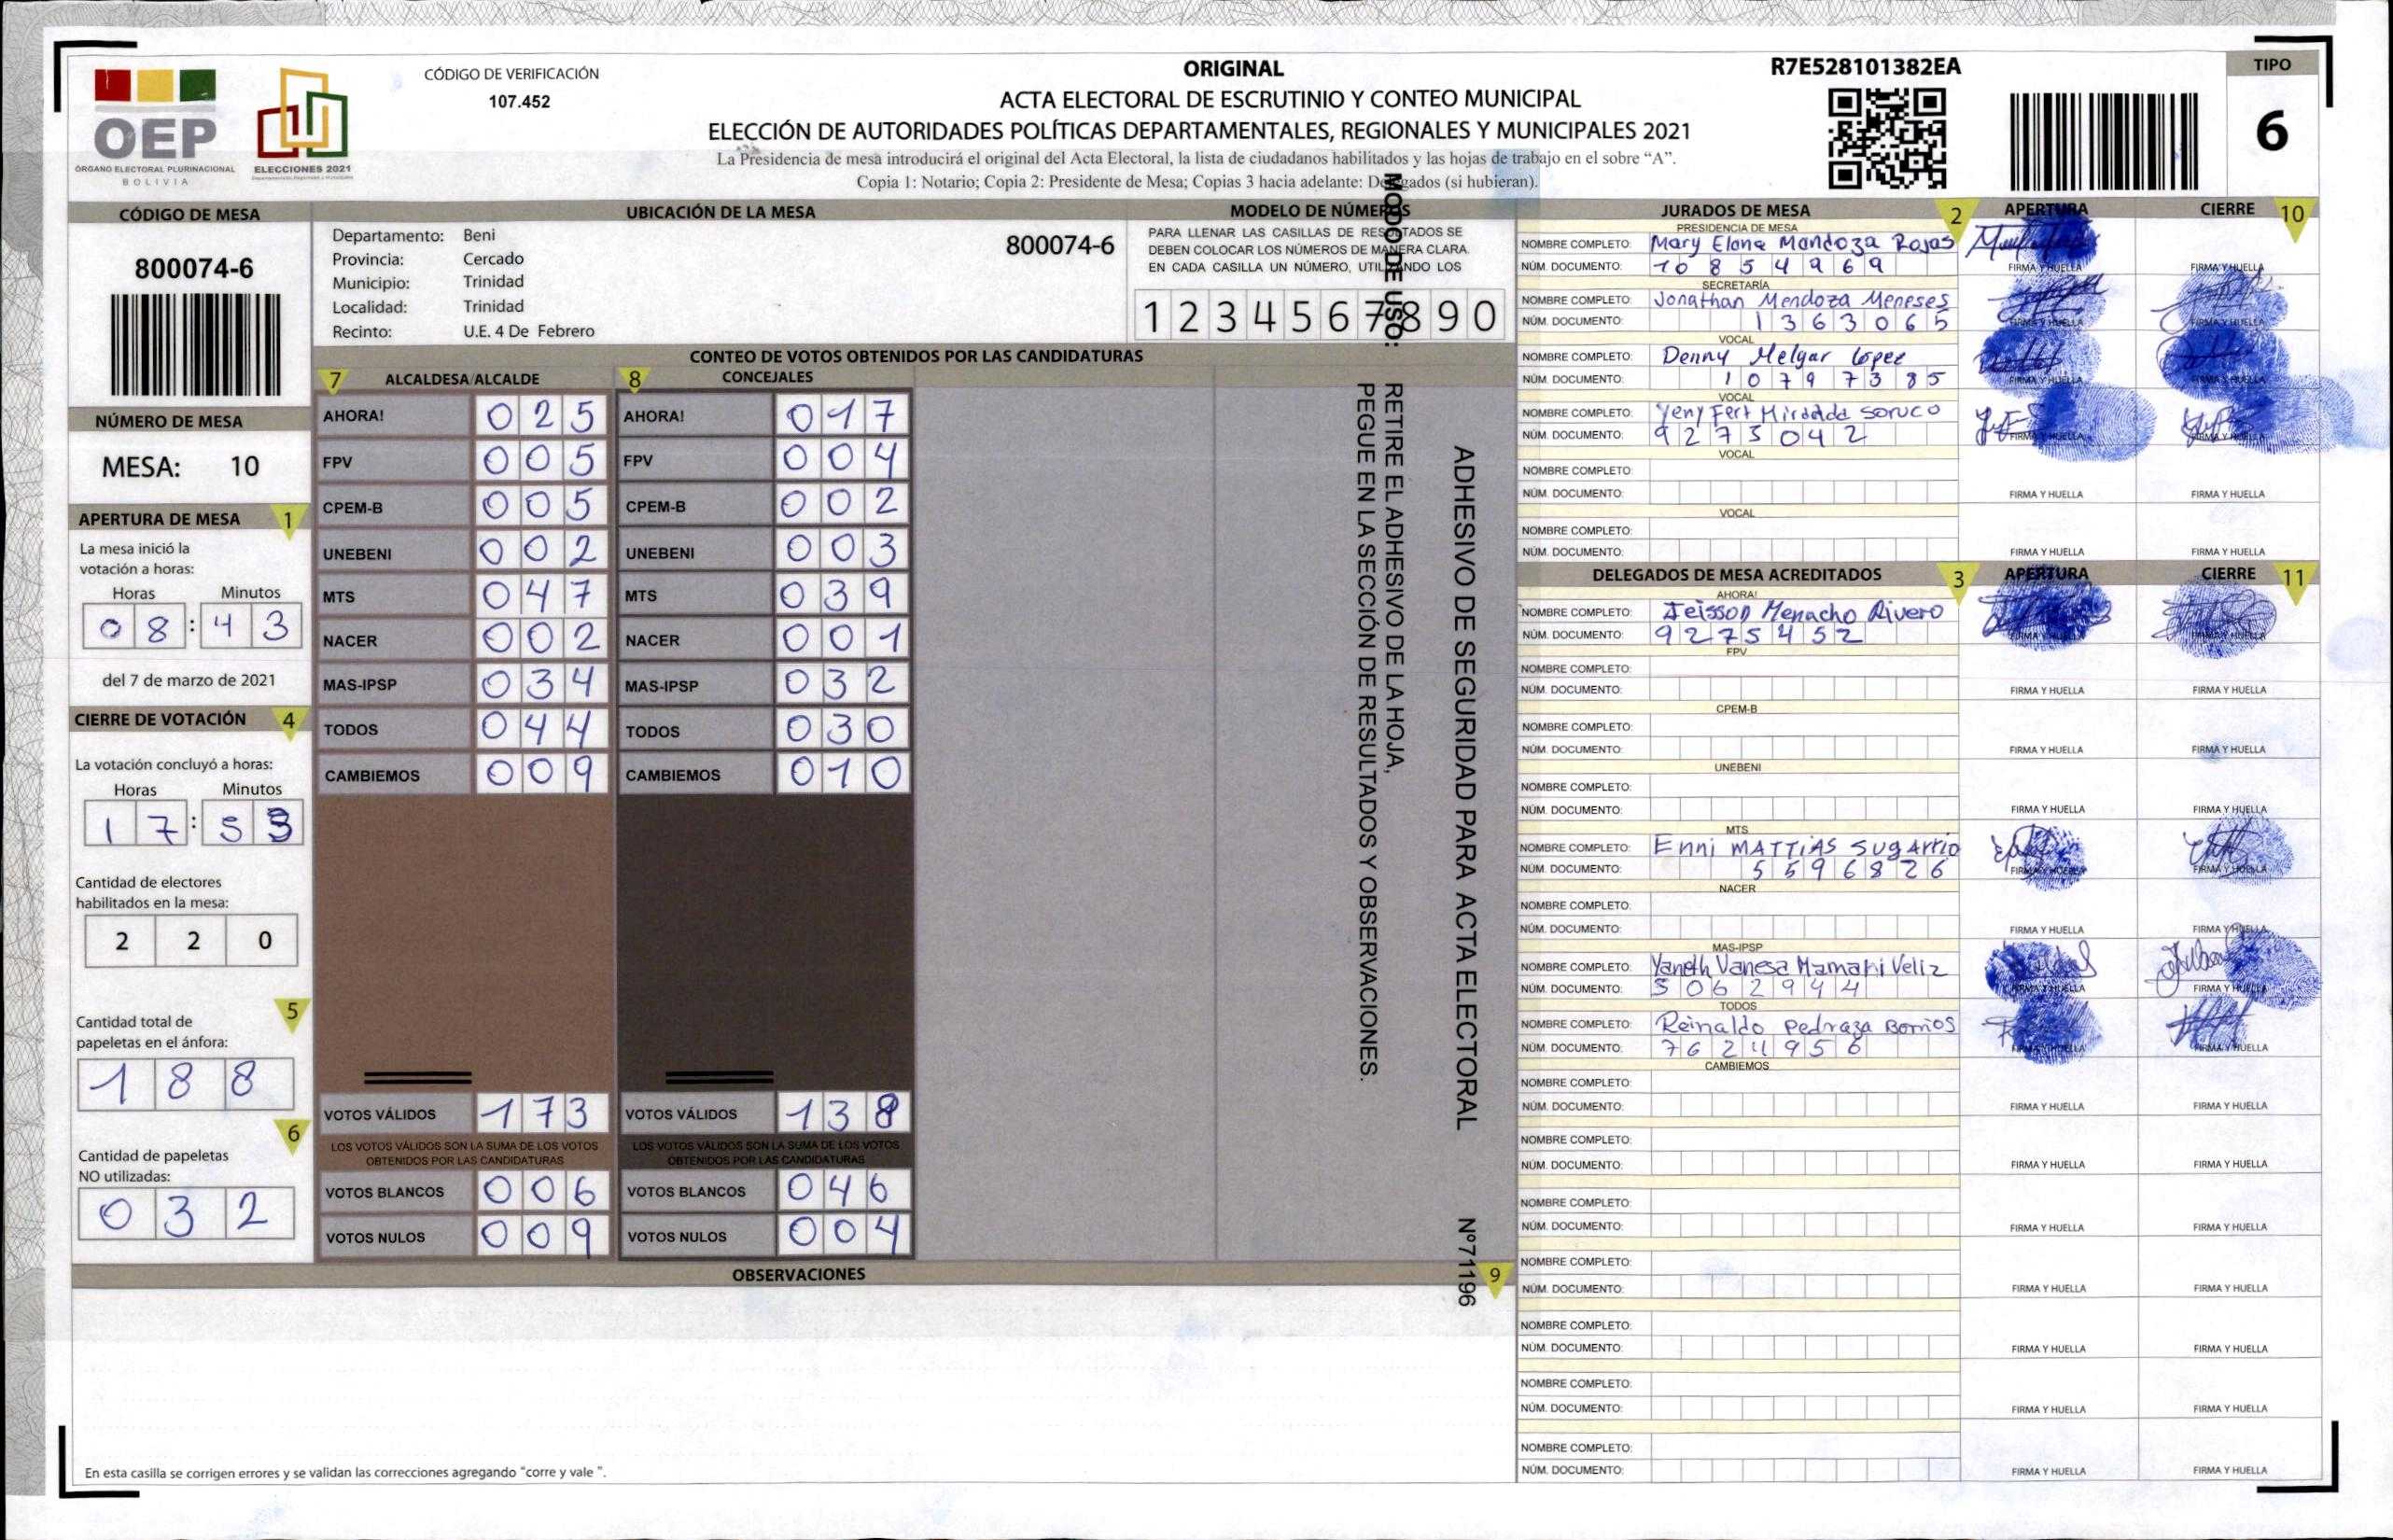 OEP
ÓRGANO ELECTORAL PLURINACIONAL
BOLIVIA
ELECCIONES 2021
CÓDIGO DE VERIFICACIÓN
107.452
ORIGINAL
ACTA ELECTORAL DE ESCRUTINIO Y CONTEO MUNICIPAL
ELECCIÓN DE AUTORIDADES POLÍTICAS DEPARTAMENTALES, REGIONALES Y MUNICIPALES 2021
La Presidencia de mesa introducirá el original del Acta Electoral, la lista de ciudadanos habilitados y las hojas de trabajo en el sobre “A”.
Copia 1: Notario; Copia 2: Presidente de Mesa; Copias 3 hacia adelante: Delegados (si hubieran).
R7E528101382EA
TIPO
6
CÓDIGO DE MESA
800074-6
NÚMERO DE MESA
MESA: 10
APERTURA DE MESA 1
La mesa inició la
votación a horas:
Horas Minutos
08:43
del 7 de marzo de 2021
CIERRE DE VOTACIÓN 4
La votación concluyó a horas:
Horas Minutos
17:53
Cantidad de electores
habilitados en la mesa:
220
5
Cantidad total de
papeletas en el ánfora:
188
6
Cantidad de papeletas
NO utilizadas:
032
UBICACIÓN DE LA MESA
Departamento: Beni
Provincia: Cercado
Municipio: Trinidad
Localidad: Trinidad
Recinto: U.E. 4 De Febrero
800074-6
MODELO DE NÚMEROS
PARA LLENAR LAS CASILLAS DE RESULTADOS SE
DEBEN COLOCAR LOS NÚMEROS DE MANERA CLARA.
EN CADA CASILLA UN NÚMERO, UTILIZANDO LOS
1 2 3 4 5 6 7 8 9 0
CONTEO DE VOTOS OBTENIDOS POR LAS CANDIDATURAS
7 ALCALDESA/ALCALDE 8 CONCEJALES
AHORA! 025 AHORA! 017
FPV 005 FPV 004
CPEM-B 005 CPEM-B 002
UNEBENI 002 UNEBENI 003
MTS 047 MTS 039
NACER 002 NACER 001
MAS-IPSP 034 MAS-IPSP 032
TODOS 044 TODOS 030
CAMBIEMOS 009 CAMBIEMOS 010
VOTOS VÁLIDOS 173 VOTOS VÁLIDOS 138
LOS VOTOS VÁLIDOS SON LA SUMA DE LOS VOTOS LOS VOTOS VÁLIDOS SON LA SUMA DE LOS VOTOS
OBTENIDOS POR LAS CANDIDATURAS OBTENIDOS POR LAS CANDIDATURAS
VOTOS BLANCOS 006 VOTOS BLANCOS 046
VOTOS NULOS 009 VOTOS NULOS 004
MODO DE USO:
RETIRE EL ADHESIVO DE LA HOJA,
PEGUE EN LA SECCIÓN DE RESULTADOS Y OBSERVACIONES.
ADHESIVO DE SEGURIDAD PARA ACTA ELECTORAL Nº71196
OBSERVACIONES 9
En esta casilla se corrigen errores y se validan las correcciones agregando “corre y vale ”.
JURADOS DE MESA 2 APERTURA CIERRE 10
PRESIDENCIA DE MESA
NOMBRE COMPLETO: Mary Elena Mendoza Rojas
NÚM. DOCUMENTO: 10854969 FIRMA Y HUELLA FIRMA Y HUELLA
SECRETARÍA
NOMBRE COMPLETO: Jonathan Mendoza Meneses
NÚM. DOCUMENTO: 1363065 FIRMA Y HUELLA FIRMA Y HUELLA
VOCAL
NOMBRE COMPLETO: Denny Melgar Lopez
NÚM. DOCUMENTO: 10797385 FIRMA Y HUELLA FIRMA Y HUELLA
VOCAL
NOMBRE COMPLETO: Yeny Soruco
NÚM. DOCUMENTO: 9273042 FIRMA Y HUELLA FIRMA Y HUELLA
VOCAL
NOMBRE COMPLETO:
NÚM. DOCUMENTO: FIRMA Y HUELLA FIRMA Y HUELLA
VOCAL
NOMBRE COMPLETO:
NÚM. DOCUMENTO: FIRMA Y HUELLA FIRMA Y HUELLA
DELEGADOS DE MESA ACREDITADOS 3 APERTURA CIERRE 11
AHORA!
NOMBRE COMPLETO: Jeisson Menacho Rivero
NÚM. DOCUMENTO: 9275452 FIRMA Y HUELLA FIRMA Y HUELLA
FPV
NOMBRE COMPLETO:
NÚM. DOCUMENTO: FIRMA Y HUELLA FIRMA Y HUELLA
CPEM-B
NOMBRE COMPLETO:
NÚM. DOCUMENTO: FIRMA Y HUELLA FIRMA Y HUELLA
UNEBENI
NOMBRE COMPLETO:
NÚM. DOCUMENTO: FIRMA Y HUELLA FIRMA Y HUELLA
MTS
NOMBRE COMPLETO: Enni MATTIAS
NÚM. DOCUMENTO: 5596826 FIRMA Y HUELLA FIRMA Y HUELLA
NACER
NOMBRE COMPLETO:
NÚM. DOCUMENTO: FIRMA Y HUELLA FIRMA Y HUELLA
MAS-IPSP
NOMBRE COMPLETO: Yaneth Vanesa Mamani Veliz
NÚM. DOCUMENTO: 5062944 FIRMA Y HUELLA FIRMA Y HUELLA
TODOS
NOMBRE COMPLETO: Reinaldo Pedraza Barrios
NÚM. DOCUMENTO: FIRMA Y HUELLA FIRMA Y HUELLA
CAMBIEMOS
NOMBRE COMPLETO:
NÚM. DOCUMENTO: FIRMA Y HUELLA FIRMA Y HUELLA
NOMBRE COMPLETO:
NÚM. DOCUMENTO: FIRMA Y HUELLA FIRMA Y HUELLA
NOMBRE COMPLETO:
NÚM. DOCUMENTO: FIRMA Y HUELLA FIRMA Y HUELLA
NOMBRE COMPLETO:
NÚM. DOCUMENTO: FIRMA Y HUELLA FIRMA Y HUELLA
NOMBRE COMPLETO:
NÚM. DOCUMENTO: FIRMA Y HUELLA FIRMA Y HUELLA
NOMBRE COMPLETO:
NÚM. DOCUMENTO: FIRMA Y HUELLA FIRMA Y HUELLA
NOMBRE COMPLETO:
NÚM. DOCUMENTO: FIRMA Y HUELLA FIRMA Y HUELLA